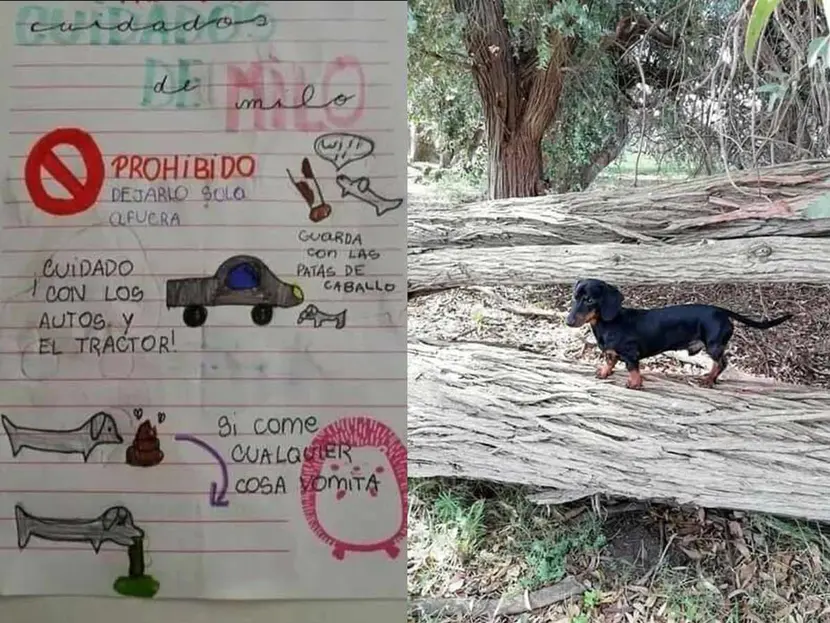 CUIDADOS
cuidados
DE MILO
de milo
PROHIBIDO
DEJARLO SOLO
AFUERA
GUARDA
CON LAS
PATAS DE
CABALLO
¡CUIDADO
CON LOS
AUTOS Y
EL TRACTOR!
Si COME
CUALQUIER
COSA VOMITA